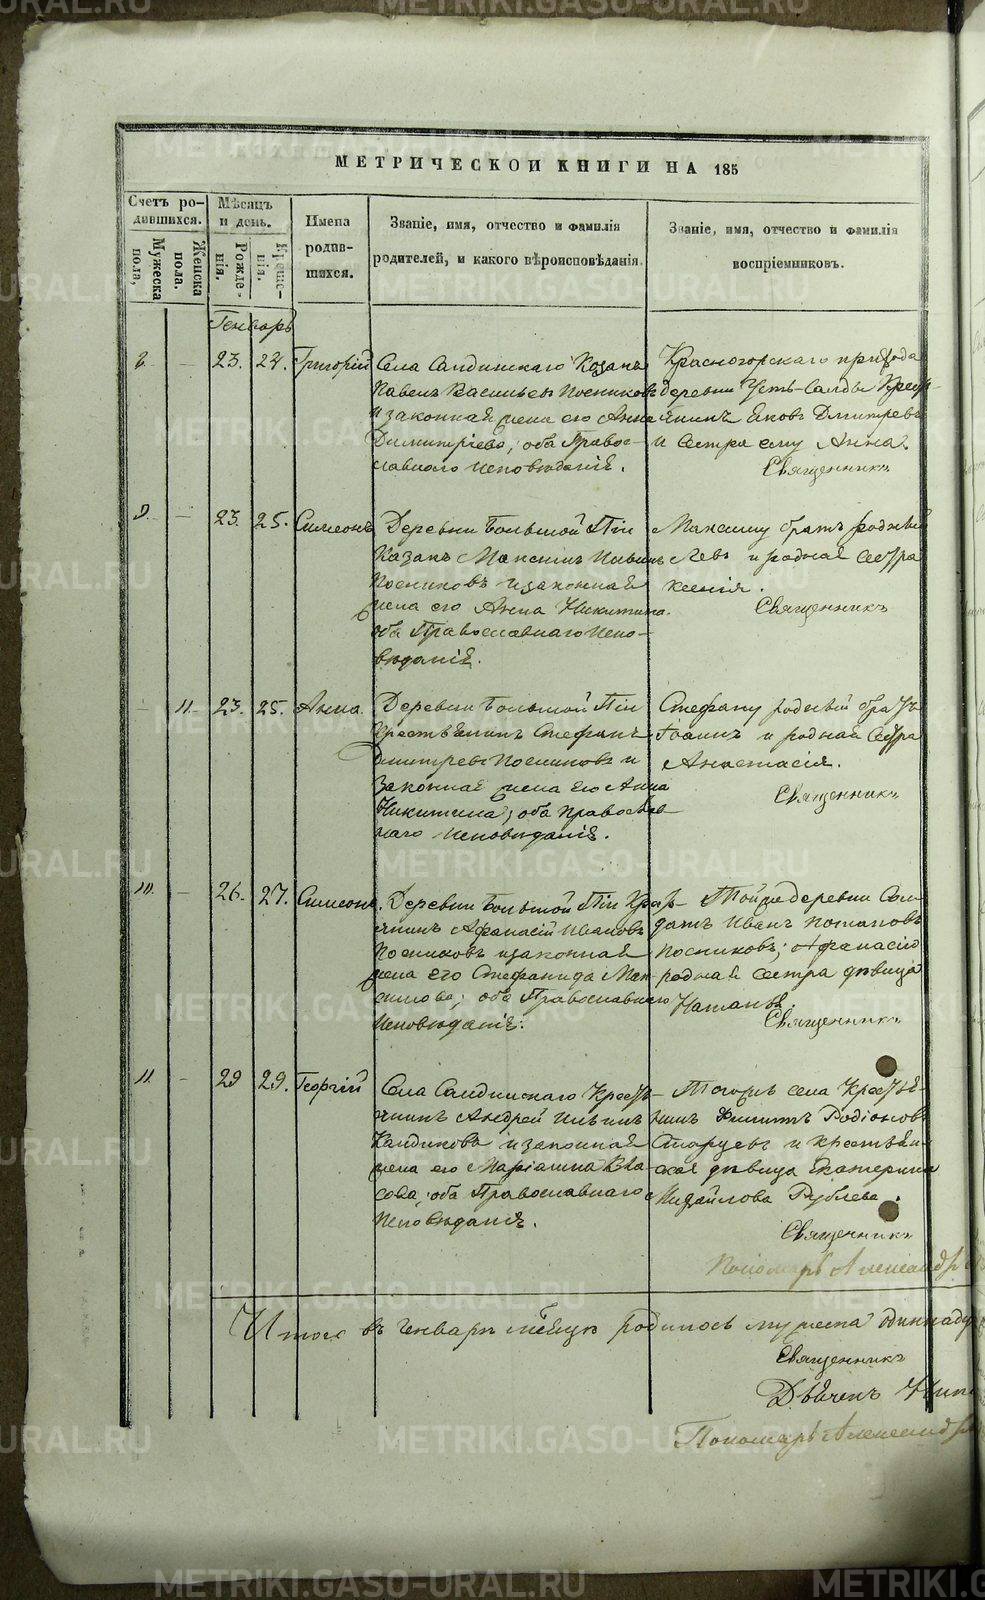 METRIKI.GASO-URAL.RU
МЕТРИЧЕСКОЙ КНИГИ НА 185
Счетъ ро-
дившихся.
Мужеска
пола,
Женска
пола.
Мѣсяцъ
и день.
Рожде-
нія.
Креще-
нія.
Имена
родив-
шихся.
Званіе, имя, отчество и фамилія
родителей, и какого вѣроисповѣданія.
Званіе, имя, отчество и фамилія
воспріемниковъ.
Генварь
8. - 23. 24. Григорій
Села Салдинскаго Козакъ
Павелъ Васильевъ Посниковъ
и законная жена его Анна
Димитріева, оба Право-
славнаго исповѣданія.
Красногорскаго прихода
деревни Усть-Салды Крест-
янинъ Яковъ Дмитревъ
и сестра ему Анна.
Священникъ
9. - 23. 25. Симеонъ
Деревни Большой Тіи
Казакъ Максимъ Ильинъ
Посниковъ и законная
жена его Анна Никитина
оба Православнаго Испо-
вѣданія.
Максиму братъ родный
Левъ и родная сестра
Ксенія.
Священникъ
- 11. 23. 25. Анна
Деревни Большой Тіи
Крестьянинъ Стефанъ
Дмитревъ Посниковъ и
Законная жена Его Анна
Никитина, оба Православ
наго исповѣданія.
Стефану родный братъ
Іоаннъ и родная Сестра
Анастасія.
Священникъ
10. - 26. 27. Симеонъ.
Деревни Большой Тіи Крест-
янинъ Афанасій Ивановъ
Посниковъ и законная
жена Его Стефанида Мак-
симова, оба Православнаго
Исповѣданія.
Той же деревни Сол-
датъ Иванъ Потаповъ
Посниковъ; Афанасію
родная сестра дѣвица
Наталья.
Священникъ
11. - 29 29. Георгій
Села Салдинскаго Кресть-
янинъ Андрей Ильинъ
и законная
жена его Маріамна Вла-
сова, оба Православнаго
Исповѣданія.
Тогожъ села Крестья-
нинъ Филипъ Родіоновъ
Старцевъ и крестьян-
ская дѣвица Екатерина
Михайлова Рублева.
Священникъ
Пономарь Александръ
Итого въ Генварѣ мѣсяцѣ родилось мужеска одиннадц
Священникъ
Дьячекъ
Пономарь Александръ